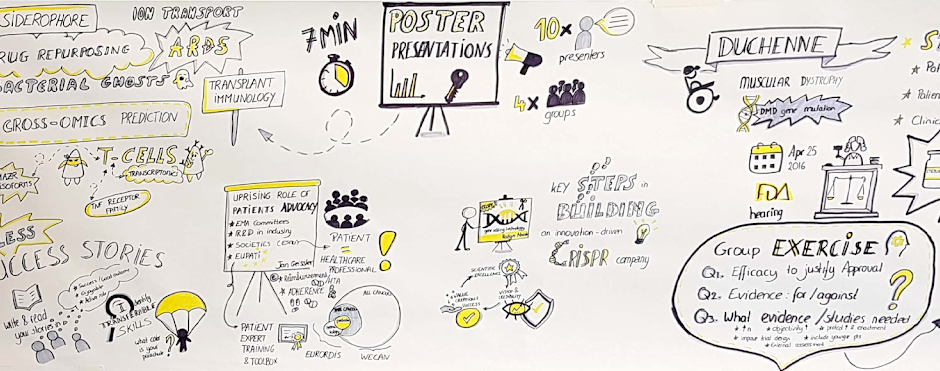 SIDEROPHORE
ION TRANSPORT
RUG REPURPOSING
ARDS
BACTERIAL GHOSTS
TRANSPLANT
IMMUNOLOGY
CROSS-OMICS PREDICTION
T-CELLS
TRANSCRIPTOMICS
ISOFORMS
TNF RECEPTOR
FAMILY
LESS
CCESS STORIES
Write & read
your stories in
Identify
TRANSFERABLE
SKILLS
what color
is your
parachute
?
7 MIN
POSTER
PRESENTATIONS
10x
presenters
4x
groups
UPRISING ROLE OF
PATIENTS ADVOCACY
★ EMA Committees
★ R&D in industry
★ SOCIETIES
★ EUPATI
Jan Geissler
PATIENT
=
HEALTHCARE
PROFESSIONAL
!
★ ADHERENCE
PATIENT
EXPERT
TRAINING
& TOOLBOX
EURORDIS
ALL CANCERS
RARE CANCERS
WECAN
KEY STEPS in
BUILDING
an innovation-driven
CRISPR company
SCIENTIFIC
EXCELLENCE
VALUE
CREATION &
SUCCESS
VISION &
CREDIBILITY
DUCHENNE
MUSCULAR DYSTROPHY
DMD gene mutation
Apr 25
2016
FDA
hearing
Group EXERCISE
Q1. Efficacy to justify Approval
Q2. Evidence: for/against
Q3. What evidence /studies needed
?
★ ↑n ★ objectivity ↑
★ improve trial design ★ include younger pts
★ external assessment